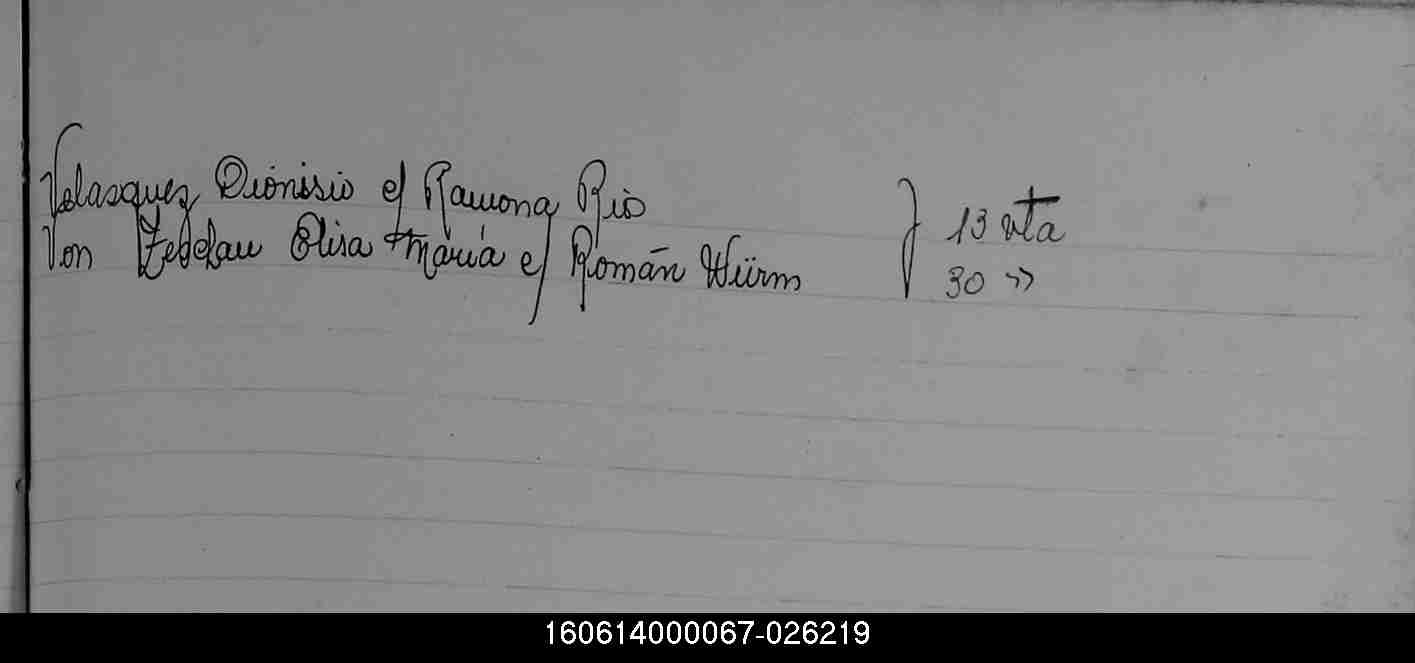 Velasquez Dionisio c/ Ramona Rio } 13 vta
Von Zedelau Elisa María c/ Román Würm } 30 »
160614000067-026219